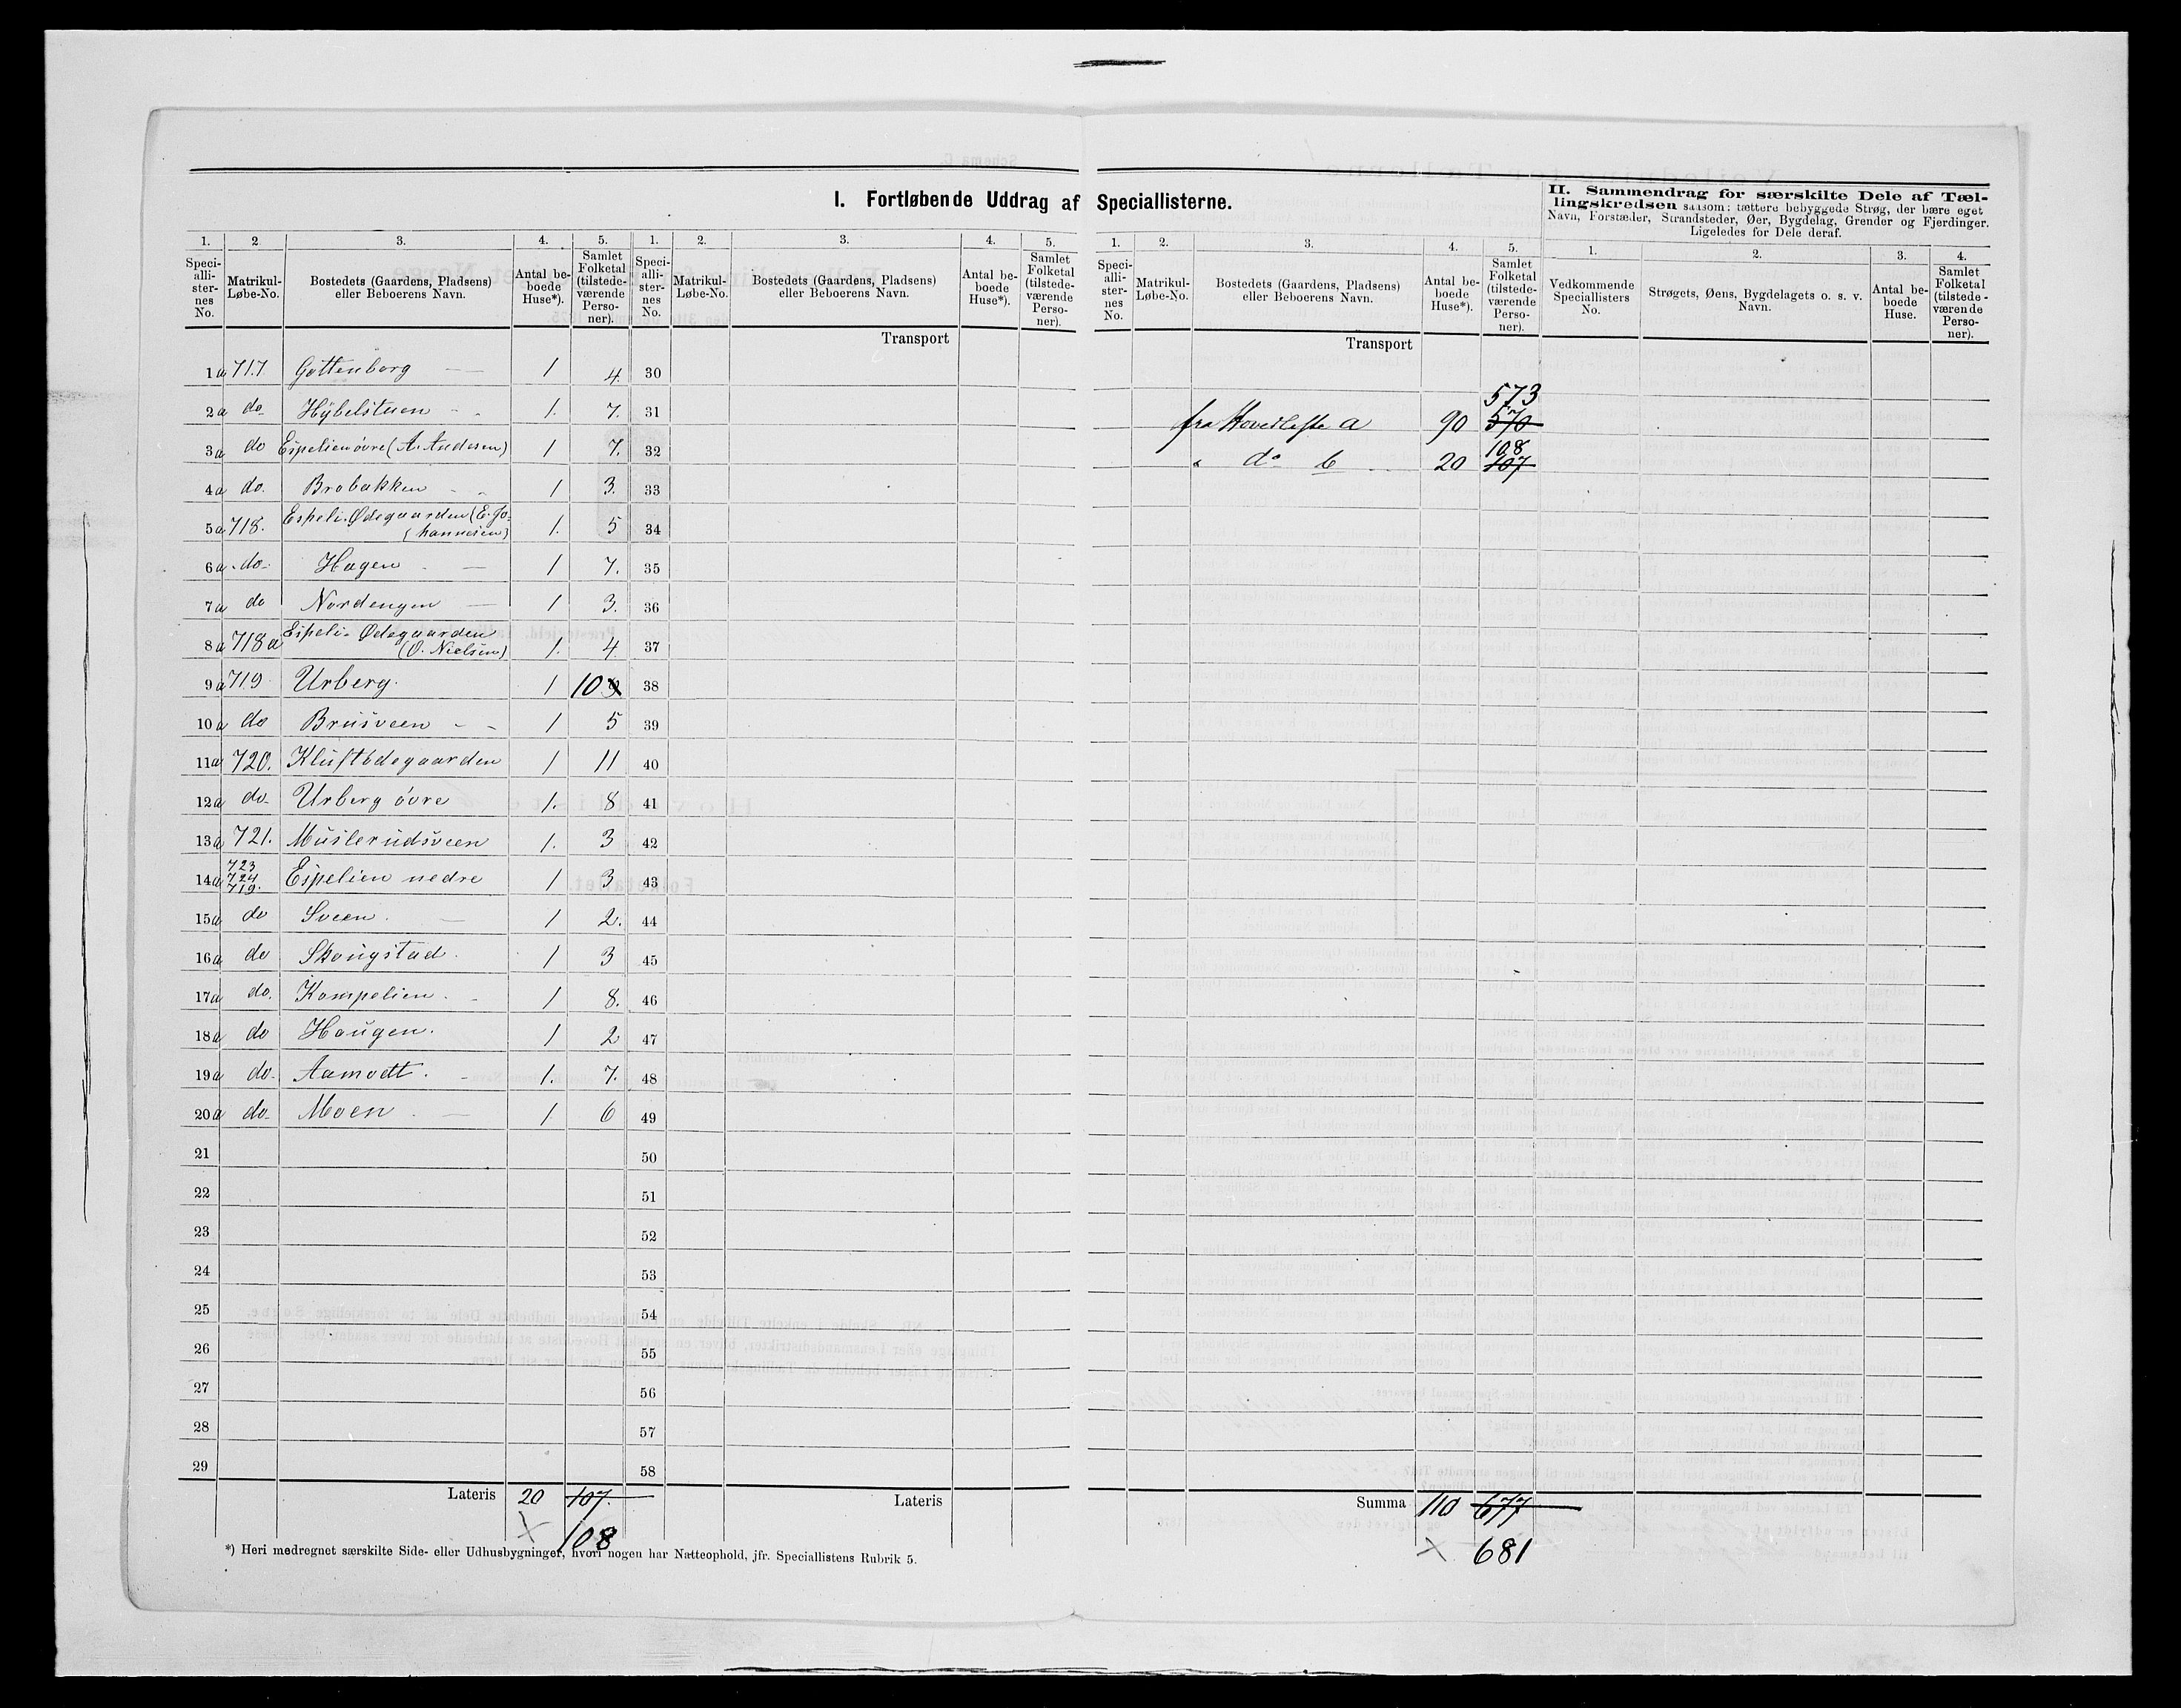 I. Fortløbende Uddrag af Speciallisterne.
II. Sammendrag for særskilte Dele af Tæl-
lingskredsen saasom: tættere bebyggede Strøg, der bære eget
Navn, Forstæder, Strandsteder, Øer, Bygdelag, Grender og Fjerdinger.
Ligeledes for Dele deraf.
1. 2 3. 4. 5. 1. 2. 3. 4. 5. 1. 2. 3. 4. 5. 1. 2. 3. 4.
Speci-alli-ster-nes No. Matrikul-Løbe-No. Bostedets (Gaardens, Pladsens) eller Beboerens Navn. Antal be-boede Huse*). Samlet Folketal (tilstede-værende Perso-ner).
Speci-alli-ster-nes No. Matrikul-Løbe-No. Bostedets (Gaardens, Pladsens) eller Beboerens Navn. Antal be-boede Huse*). Samlet Folketal (tilstede-værende Perso-ner).
Speci-alli-ster-nes No. Matrikul-Løbe-No. Bostedets (Gaardens, Pladsens) eller Beboerens Navn. Antal be-boede Huse*). Samlet Folketal (tilstede-værende Perso-ner).
Vedkommende Speciallisters No. Strøgets, Øens, Bygdelagets o. s. v. Navn. Antal be-boede Huse. Samlet Folketal (tilstede-værende Perso-ner).
Transport
Transport
1a 717 Gottenborg 1 4. 30
2a do Hybelstuen 1. 7. 31
573
fra Hovedliste a 90 570
3a do Espelien övre (A. Andersen) 1 7. 32
108
" do b 20 107
4a do. Brobakken 1 3. 33
5a 718. Espeli. Ødegaarden (E. Jo-
hannesen) 1. 5 34
6a do Hagen 1 7. 35
7a do Nordengen 1 3. 36
8a 718a Espeli. Ødegaarden
(O. Nielsen) 1. 4 37
9a 719 Urberg. 1 10 9 38
10a do Brusveen 1 5 39
11a 720. Kluftödegaarden 1 11 40
12a do Urberg övre 1. 8 41
13a 721. Muslerudsveen 1. 3 42
14a 723 724 719. Espelien nedre 1 3 43
15a do Sveen. 1 2. 44
16a do Skougstad. 1 3 45
17a do. Kompelien. 1 8. 46
18a do Haugen. 1 2 47
19a do Aamodt. 1. 7. 48
20a do Moen. 1 6 49
21 50
22 51
23 52
24 53
25 54
26 55
27 56
28 57
29 58
Lateris 20 107. Lateris Summa 110 677
108
681
*) Heri medregnet særskilte Side- eller Udhusbygninger, hvori nogen har Natteophold, jfr. Speciallistens Rubrik 5.